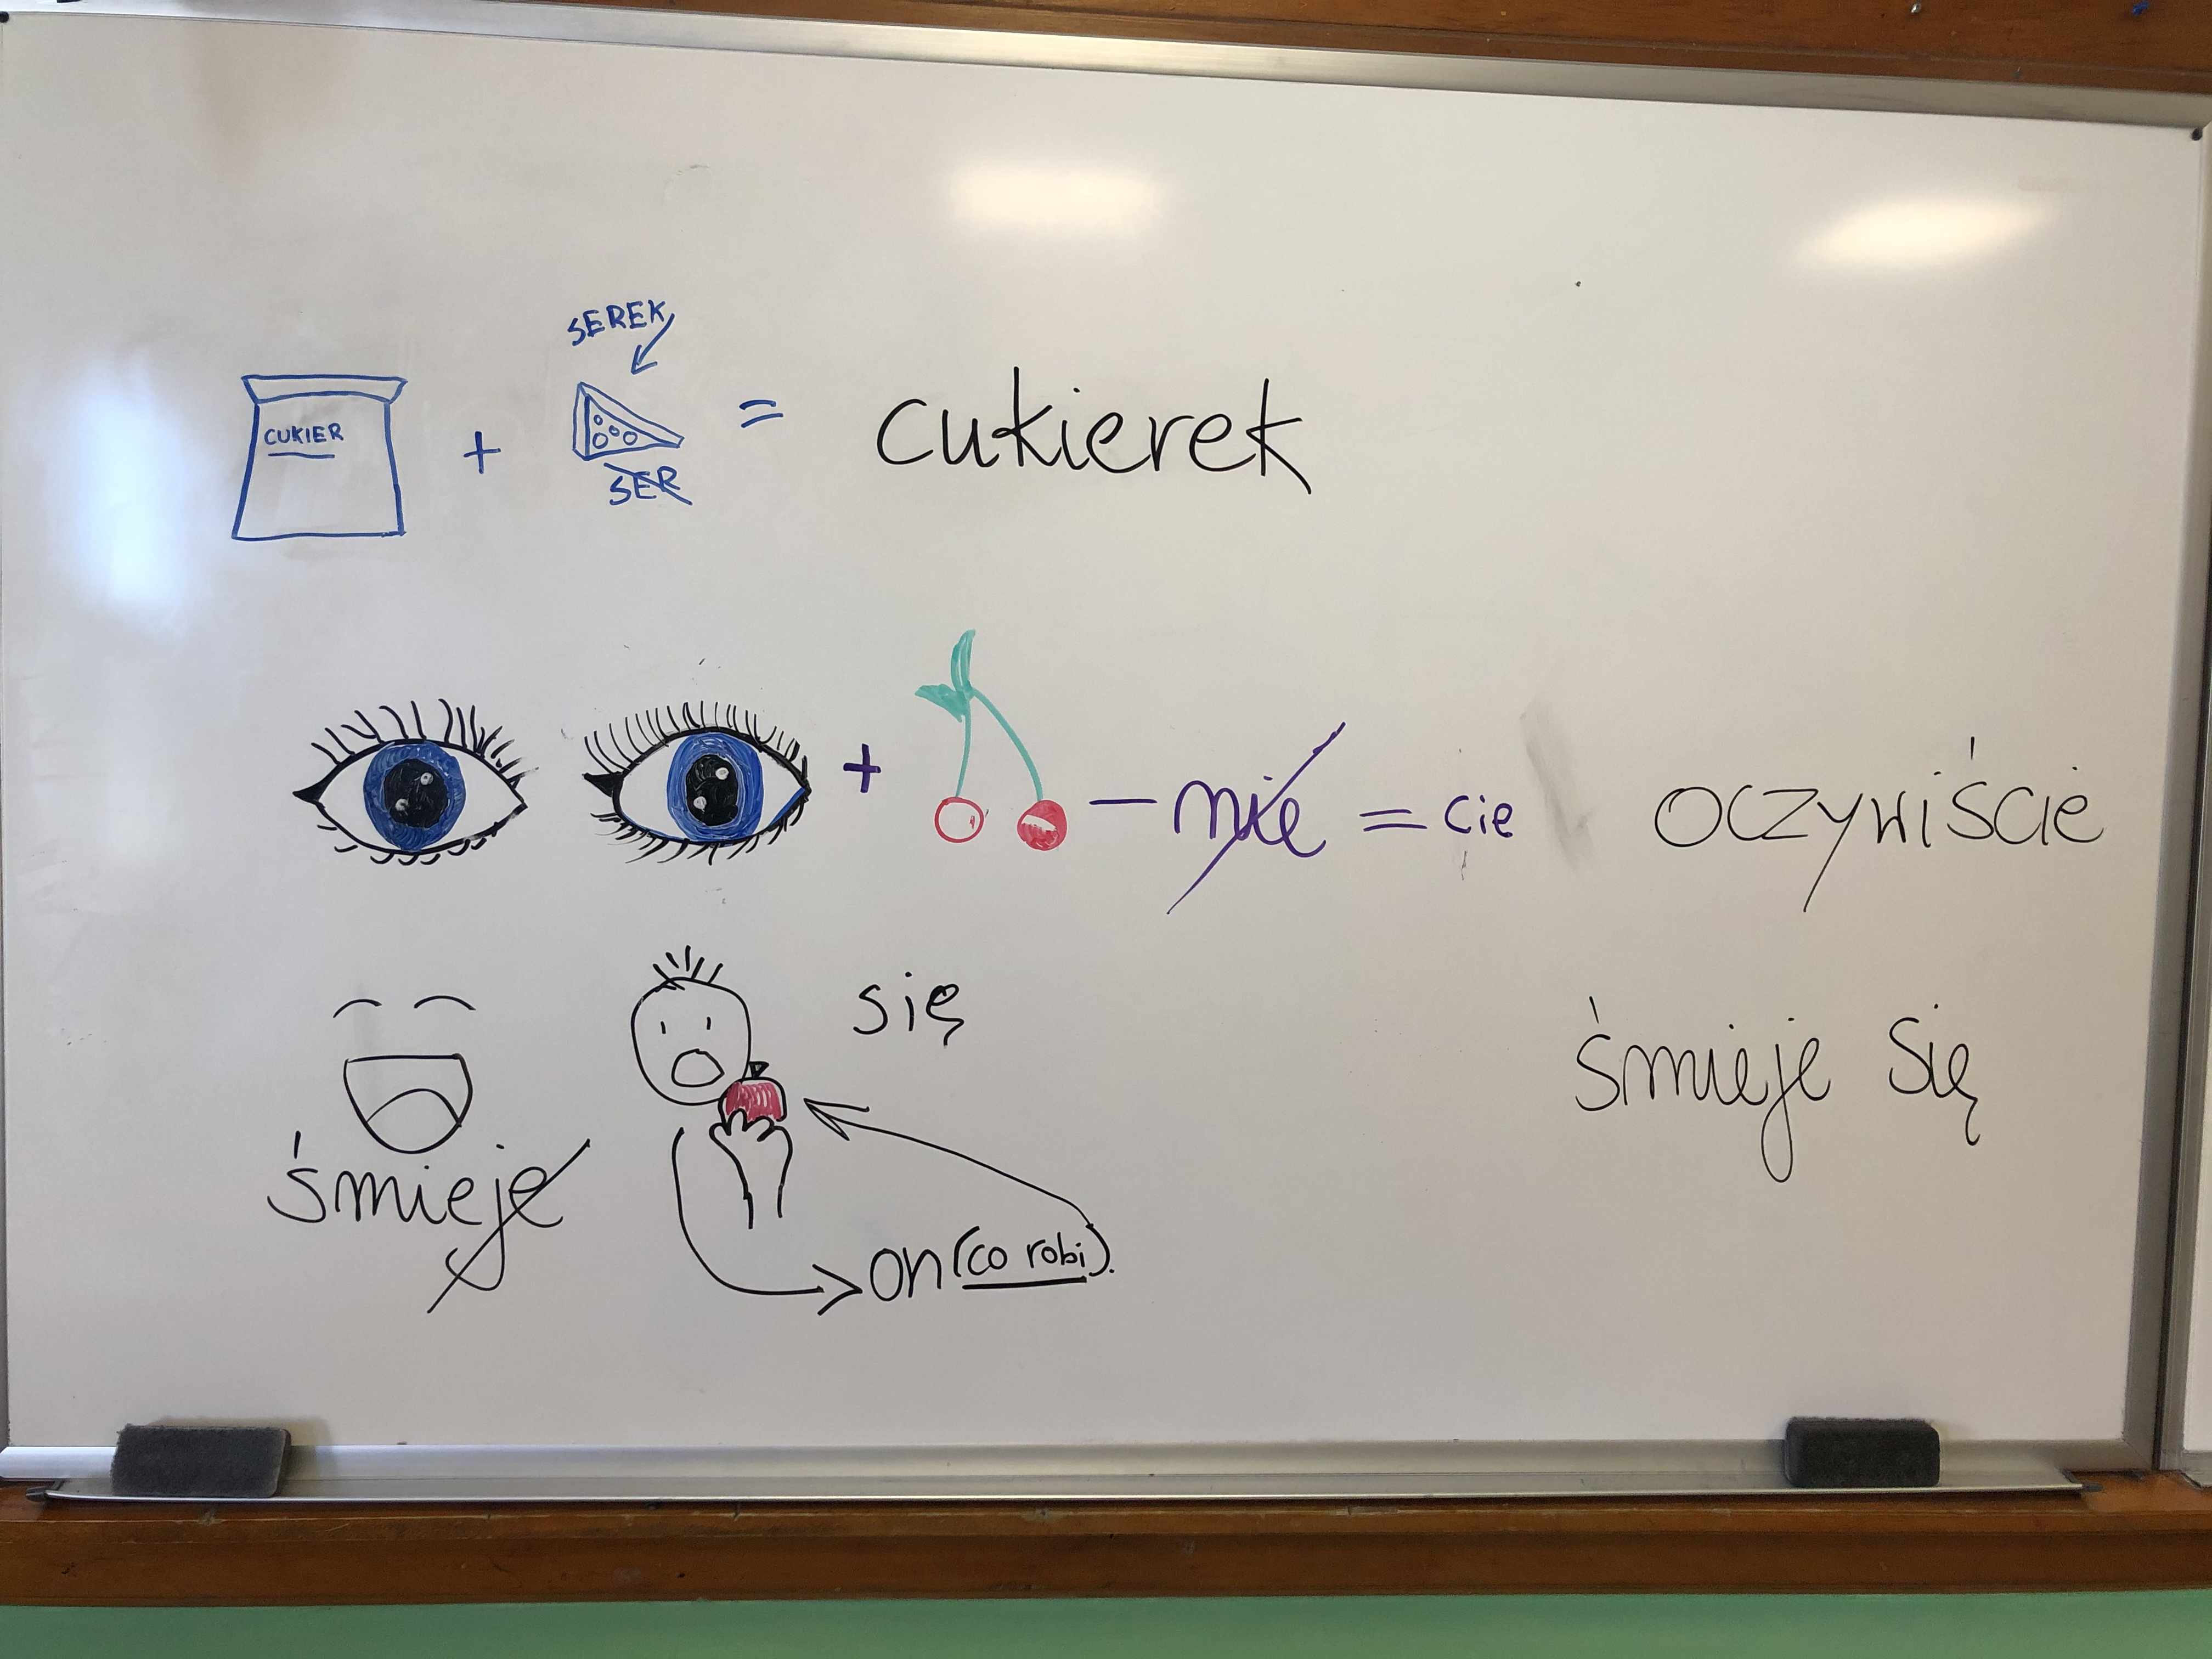 SEREK
CUKIER + SER = cukierek
+ − nie = cie oczywiście
się
śmieje się
śmieje
on (co robi).